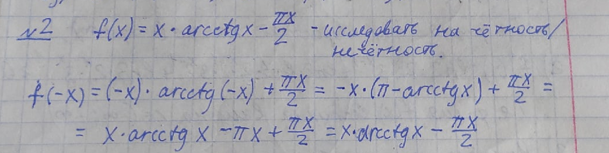 №2 f(x) = x · arcctg x − πx/2 - исследовать на чётность/
нечётность.
f(-x) = (-x) · arcctg (-x) + πx/2 = -x · (π - arcctg x) + πx/2 =
= x · arcctg x − πx + πx/2 = x · arcctg x − πx/2